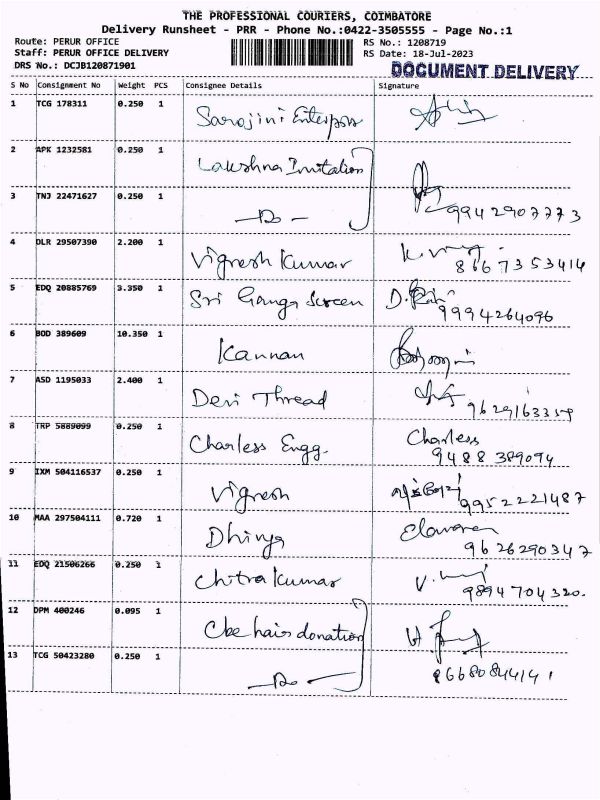 THE PROFESSIONAL COURIERS, COIMBATORE
Delivery Runsheet - PRR - Phone No.:0422-3505555 - Page No.:1
Route: PERUR OFFICE
Staff: PERUR OFFICE DELIVERY
DRS No.: DCJB120871901
RS No.: 1208719
RS Date: 18-Jul-2023
DOCUMENT DELIVERY
S No Consignment No Weight PCS Consignee Details Signature
1 TCG 178311 0.250 1 Sarojini Enterprss
2 APK 1232581 0.250 1 Lakshna Invitation
3 TNJ 22471627 0.250 1 - Do - 9942907773
4 DLR 29507390 2.200 1 Vignesh Kumar 8667353414
5 EDQ 20885769 3.350 1 Sri Ganga Screen 9994264096
6 BOD 389609 10.350 1 Kannan
7 ASD 1195033 2.400 1 Devi Thread 9629163359
8 TRP 5889099 0.250 1 Charless Engg. Charless
9488389094
9 IXM 504116537 0.250 1 Vignesh 9952221487
10 MAA 297504111 0.720 1 Dhivya Elavaran
9626290347
11 EDQ 21506266 0.250 1 Chitra Kumar 9894704320.
12 DPM 400246 0.095 1 Cbe hair donation
13 TCG 50423280 0.250 1 - Do -